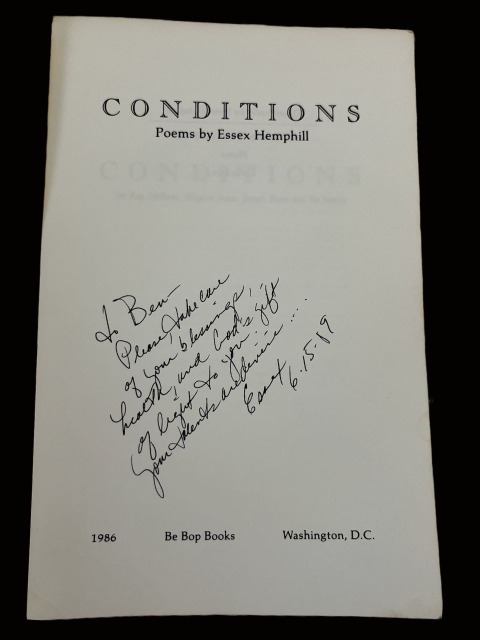 CONDITIONS
Poems by Essex Hemphill
to Ben—
Please, take care
of your blessings,
health, and God's gift
of light to you!
Your talents are divine ....
Essex 6.15.89
1986 Be Bop Books Washington, D.C.